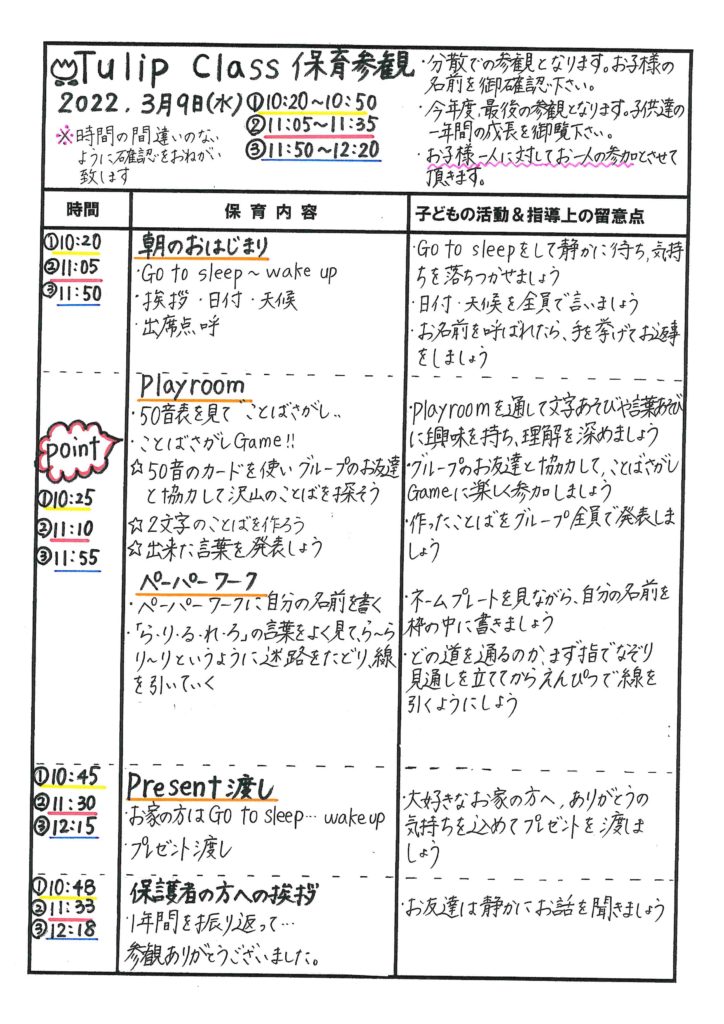 Tulip Class 保育参観
2022.3月9日(水)
①10:20~10:50
②11:05~11:35
③11:50~12:20
※時間の間違いのない
ように確認をおねがい
致します
・分散での参観となります。お子様の
名前を御確認下さい。
・今年度、最後の参観となります。子供達の
一年間の成長を御覧下さい。
・お子様一人に対してお一人の参加とさせて
頂きます。
時間
保育内容
子どもの活動&指導上の留意点
①10:20
②11:05
③11:50
朝のおはじまり
・Go to sleep~wake up
・挨拶・日付・天候
・出席点呼
・Go to sleepをして静かに待ち、気持
ちを落ちつかせましょう
・日付・天候を全員で言いましょう
・お名前を呼ばれたら、手を挙げてお返事
をしましょう
point
①10:25
②11:10
③11:55
Playroom
・50音表を見て ことばさがし..
・ことばさがしGame!!
☆50音のカードを使いグループのお友達
と協力して沢山のことばを探そう
☆2文字のことばを作ろう
☆出来た言葉を発表しよう
ペーパーワーク
・ペーパーワークに自分の名前を書く
・「ら・り・る・れ・ろ」の言葉をよく見て、ら~ら
り~りというように迷路をたどり、線
を引いていく
・Playroomを通して文字あそびや言葉あそび
に興味を持ち、理解を深めましょう
・グループのお友達と協力して、ことばさがし
Gameに楽しく参加しましょう
・作ったことばをグループ全員で発表しま
しょう
・ネームプレートを見ながら、自分の名前を
枠の中に書きましょう
・どの道を通るのか、まず指でなぞり
見通しを立ててからえんぴつで線を
引くようにしよう
①10:45
②11:30
③12:15
Present渡し
・お家の方はGo to sleep…wake up
・プレゼント渡し
・大好きなお家の方へ、ありがとうの
気持ちを込めてプレゼントを渡しま
しょう
①10:48
②11:33
③12:18
保護者の方への挨拶
・1年間を振り返って…
参観ありがとうございました。
・お友達は静かにお話を聞きましょう